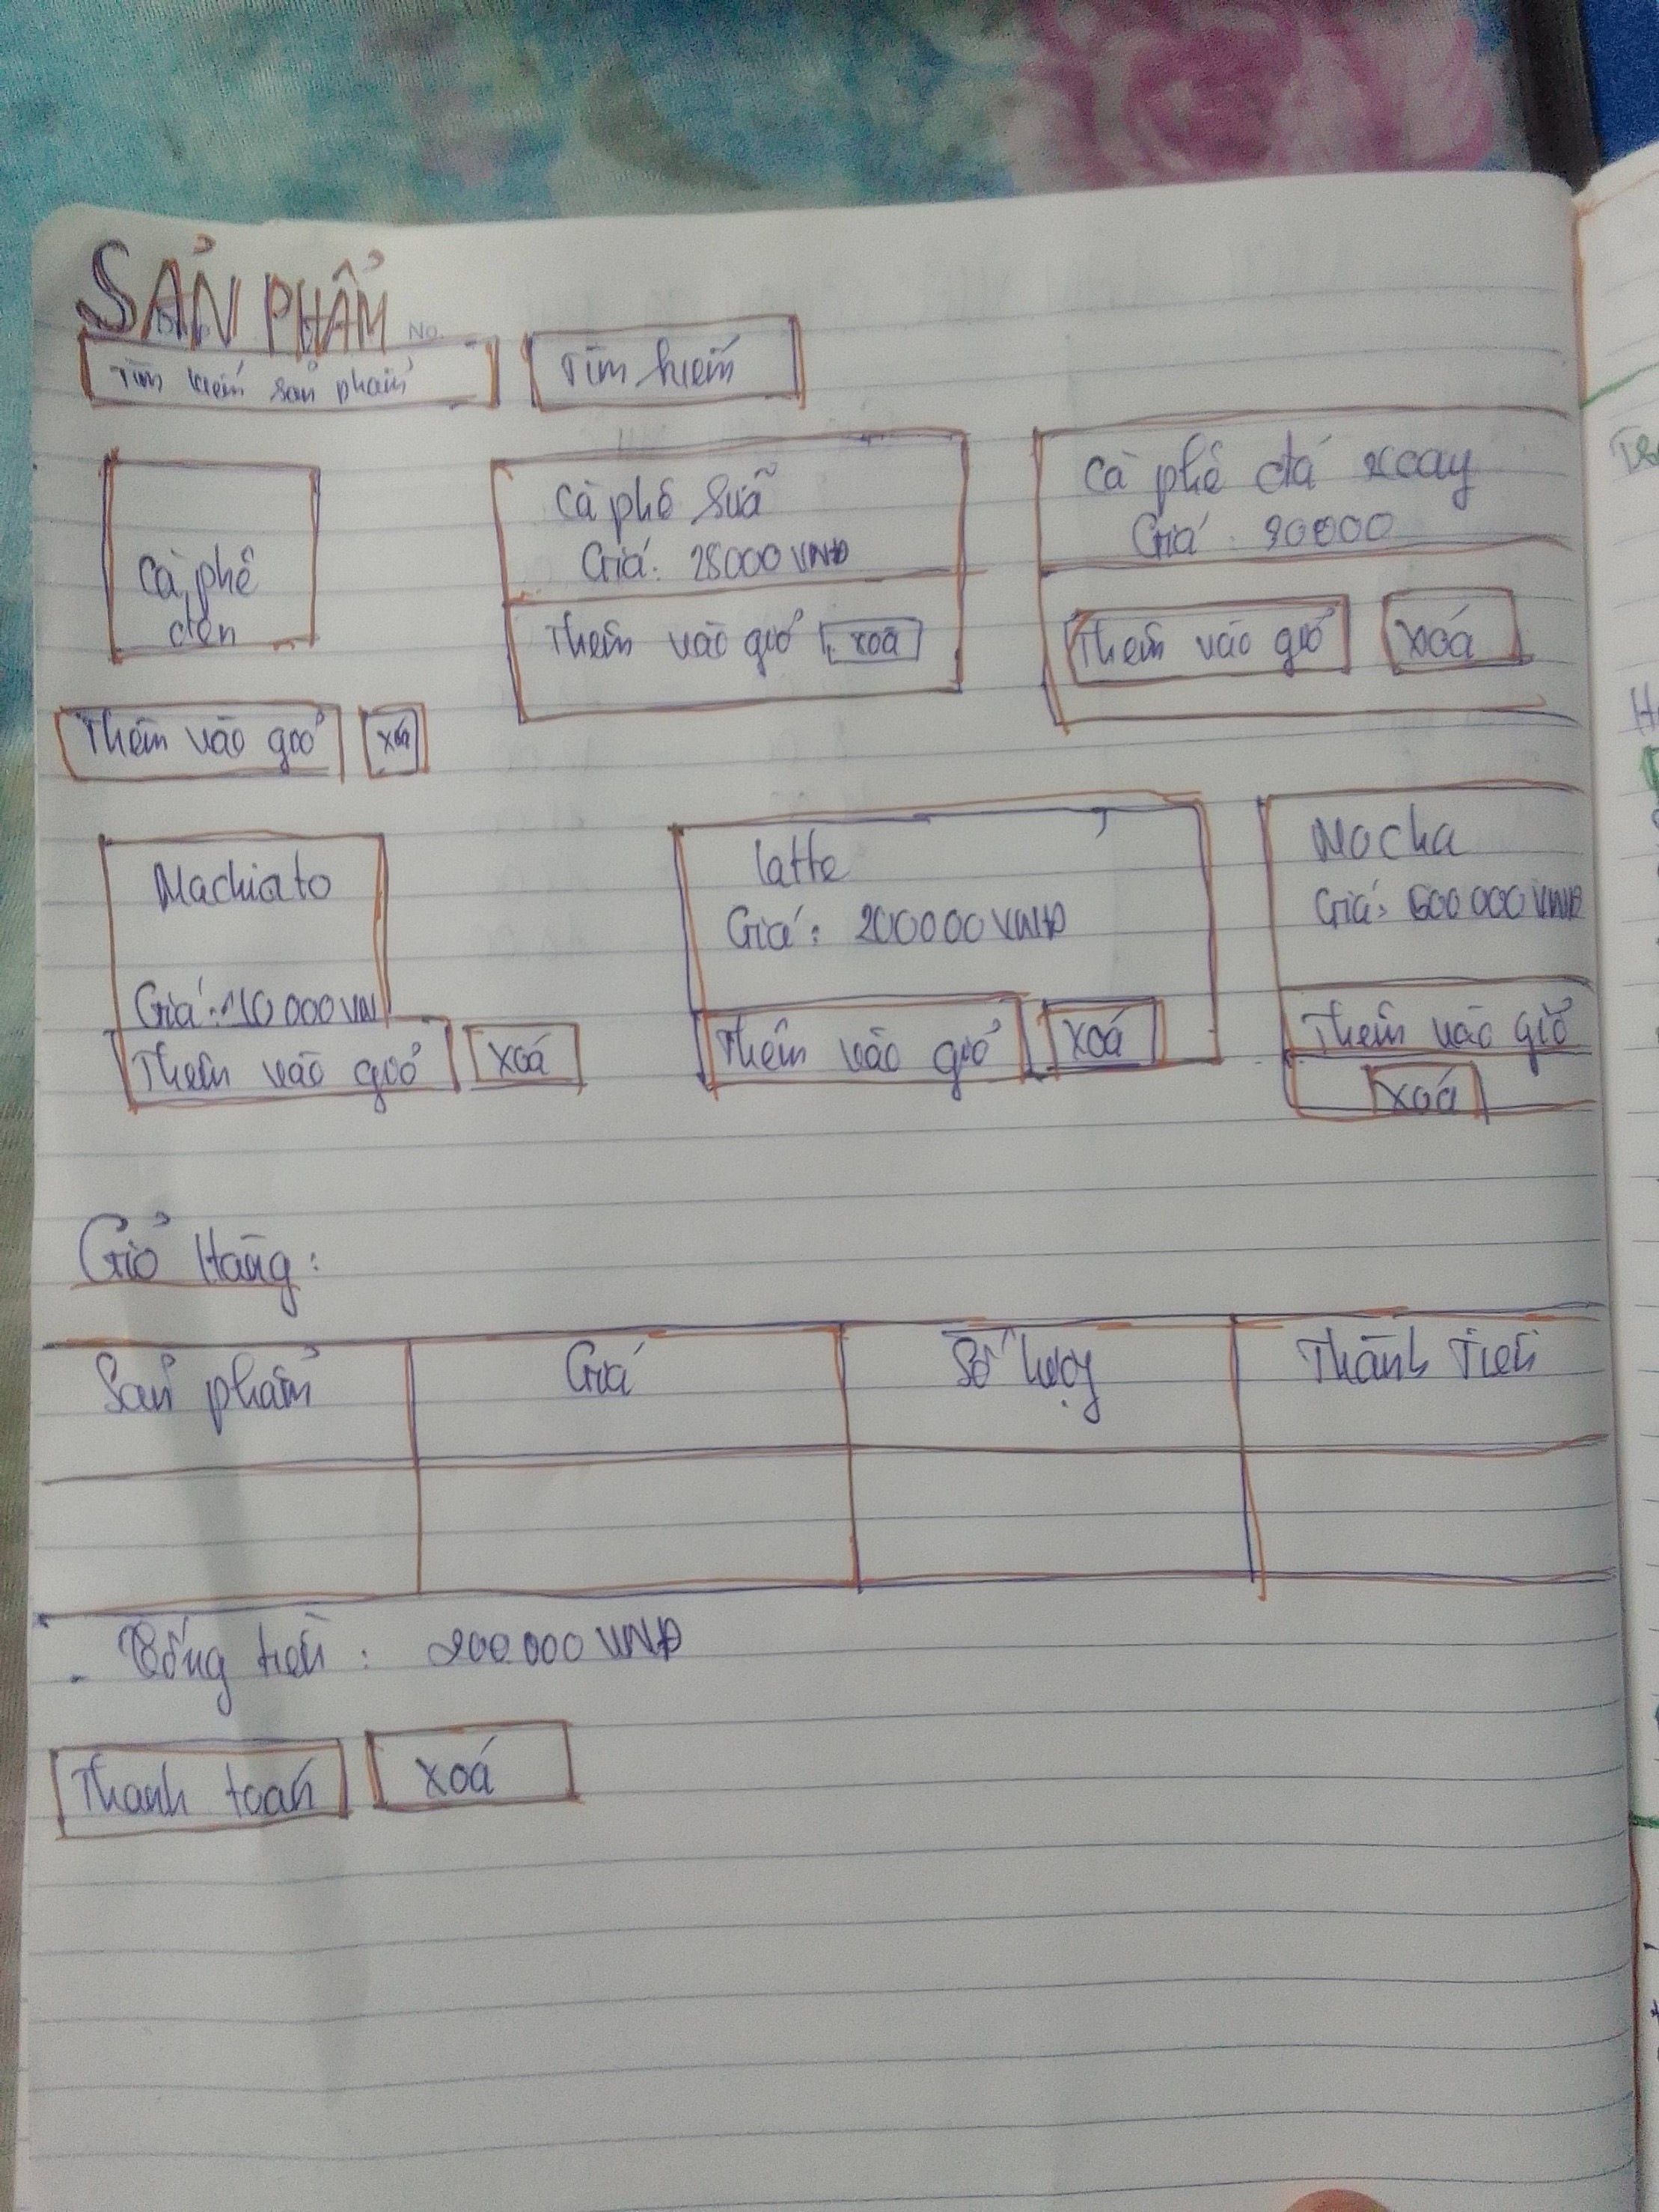 SẢN PHẨM
No.
Tìm kiếm sản phẩm
Tìm kiếm
Cà phê
đen
Thêm vào giỏ
xoá
Cà phê sữa
Giá: 25000 VNĐ
Thêm vào giỏ
xoá
Cà phê đá xoay
Giá:
Thêm vào giỏ
xoá
Machiato
Giá: 110 000 VN
Thêm vào giỏ
xoá
latte
Giá: 200000 VNĐ
Thêm vào giỏ
xoá
Mocha
Giá: 500 000 VNĐ
Thêm vào giỏ
xoá
Giỏ Hàng:
Sản phẩm Giá Số lượg Thành Tiền
- Tổng tiền : 200.000 VNĐ
Thanh toán
xoá